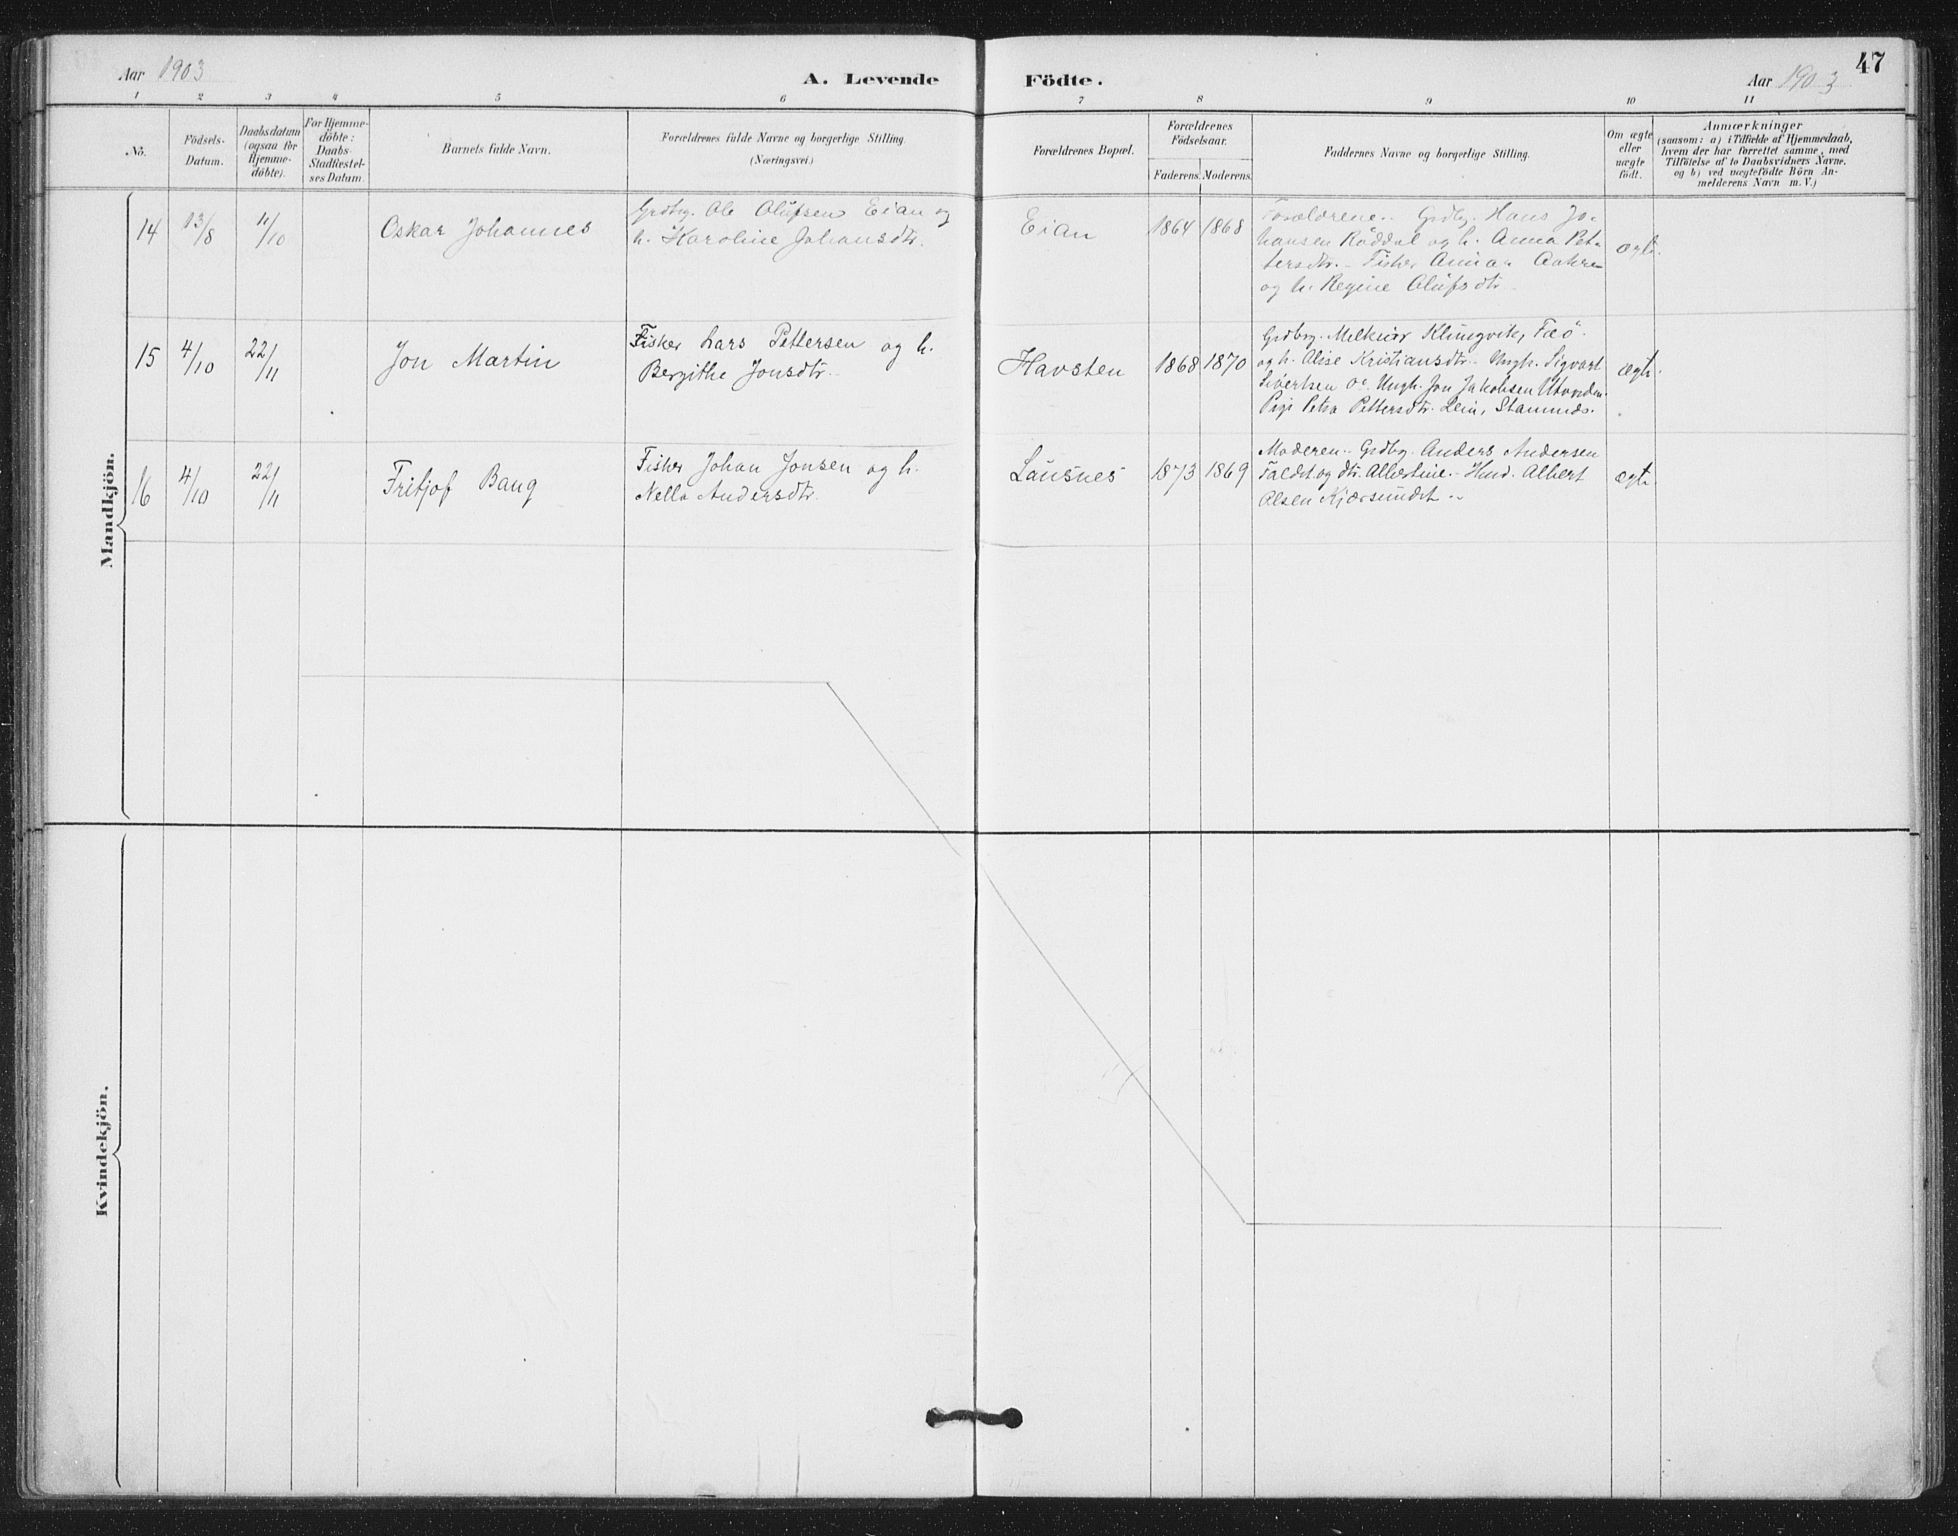 Aar 1903
A. Levende Födte.
Aar 1903
47
1 2 3 4 5 6 7 8 9 10 11
No.
Födsels-
Datum.
Daabsdatum
(ogsaa for
Hjemme-
döbte).
For Hjemme-
döbte:
Daabs-
Stadfæstel-
ses Datum.
Barnets fulde Navn.
Forældrenes fulde Navne og borgerlige Stilling
(Næringsvei.)
Forældrenes Bopæl.
Forældrenes
Födselsaar.
Faderens. Moderens.
Faddernes Navne og borgerlige Stilling.
Om ægte
eller
uægte
födt.
Anmærkninger
(saasom: a) i Tilfælde af Hjemmedaab,
hvem der har forrettet samme, med
Tilföielse af to Daabsvidners Navne.
og b) ved uægtefödte Börn An-
melderens Navn m. V.)
Mandkjön.
14 13/8 11/10 Oskar Johannes
Grdbrg. Ole Olufsen Eian og
h. Karoline Johansdtr.
Eian 1864 1868
Forældrene. Grdbg. Hans Jo-
hansen Röddal og h. Anna Pet-
tersdtr. Fisker
og h. Regine Olufsdtr
ægte.
15 4/10 22/11 Jon Martin
Fisker Lars Pettersen og h.
Bergithe Jonsdtr.
Havsten 1868 1870
Grdbrg. Melkior Klungvik, Fæö
og h. Alise Kristiansdtr. Ungk. Sigvart
Sivertsen og Ungk. Jon Jakobsen Utvorden.
Pige Petra Pettersdtr. Lein, Stamnæs.
ægte.
16 4/10 22/11 Fritjof Bang
Fisker Johan Jonsen og h.
Nella Andersdtr.
Lausnes 1873 1869
Moderen. Grdbg. Anders Andersen
Faldet og dtr. Albertine. Hmd. Albert
Olsen Kjærsundet
ægte.
Kvindekjön.